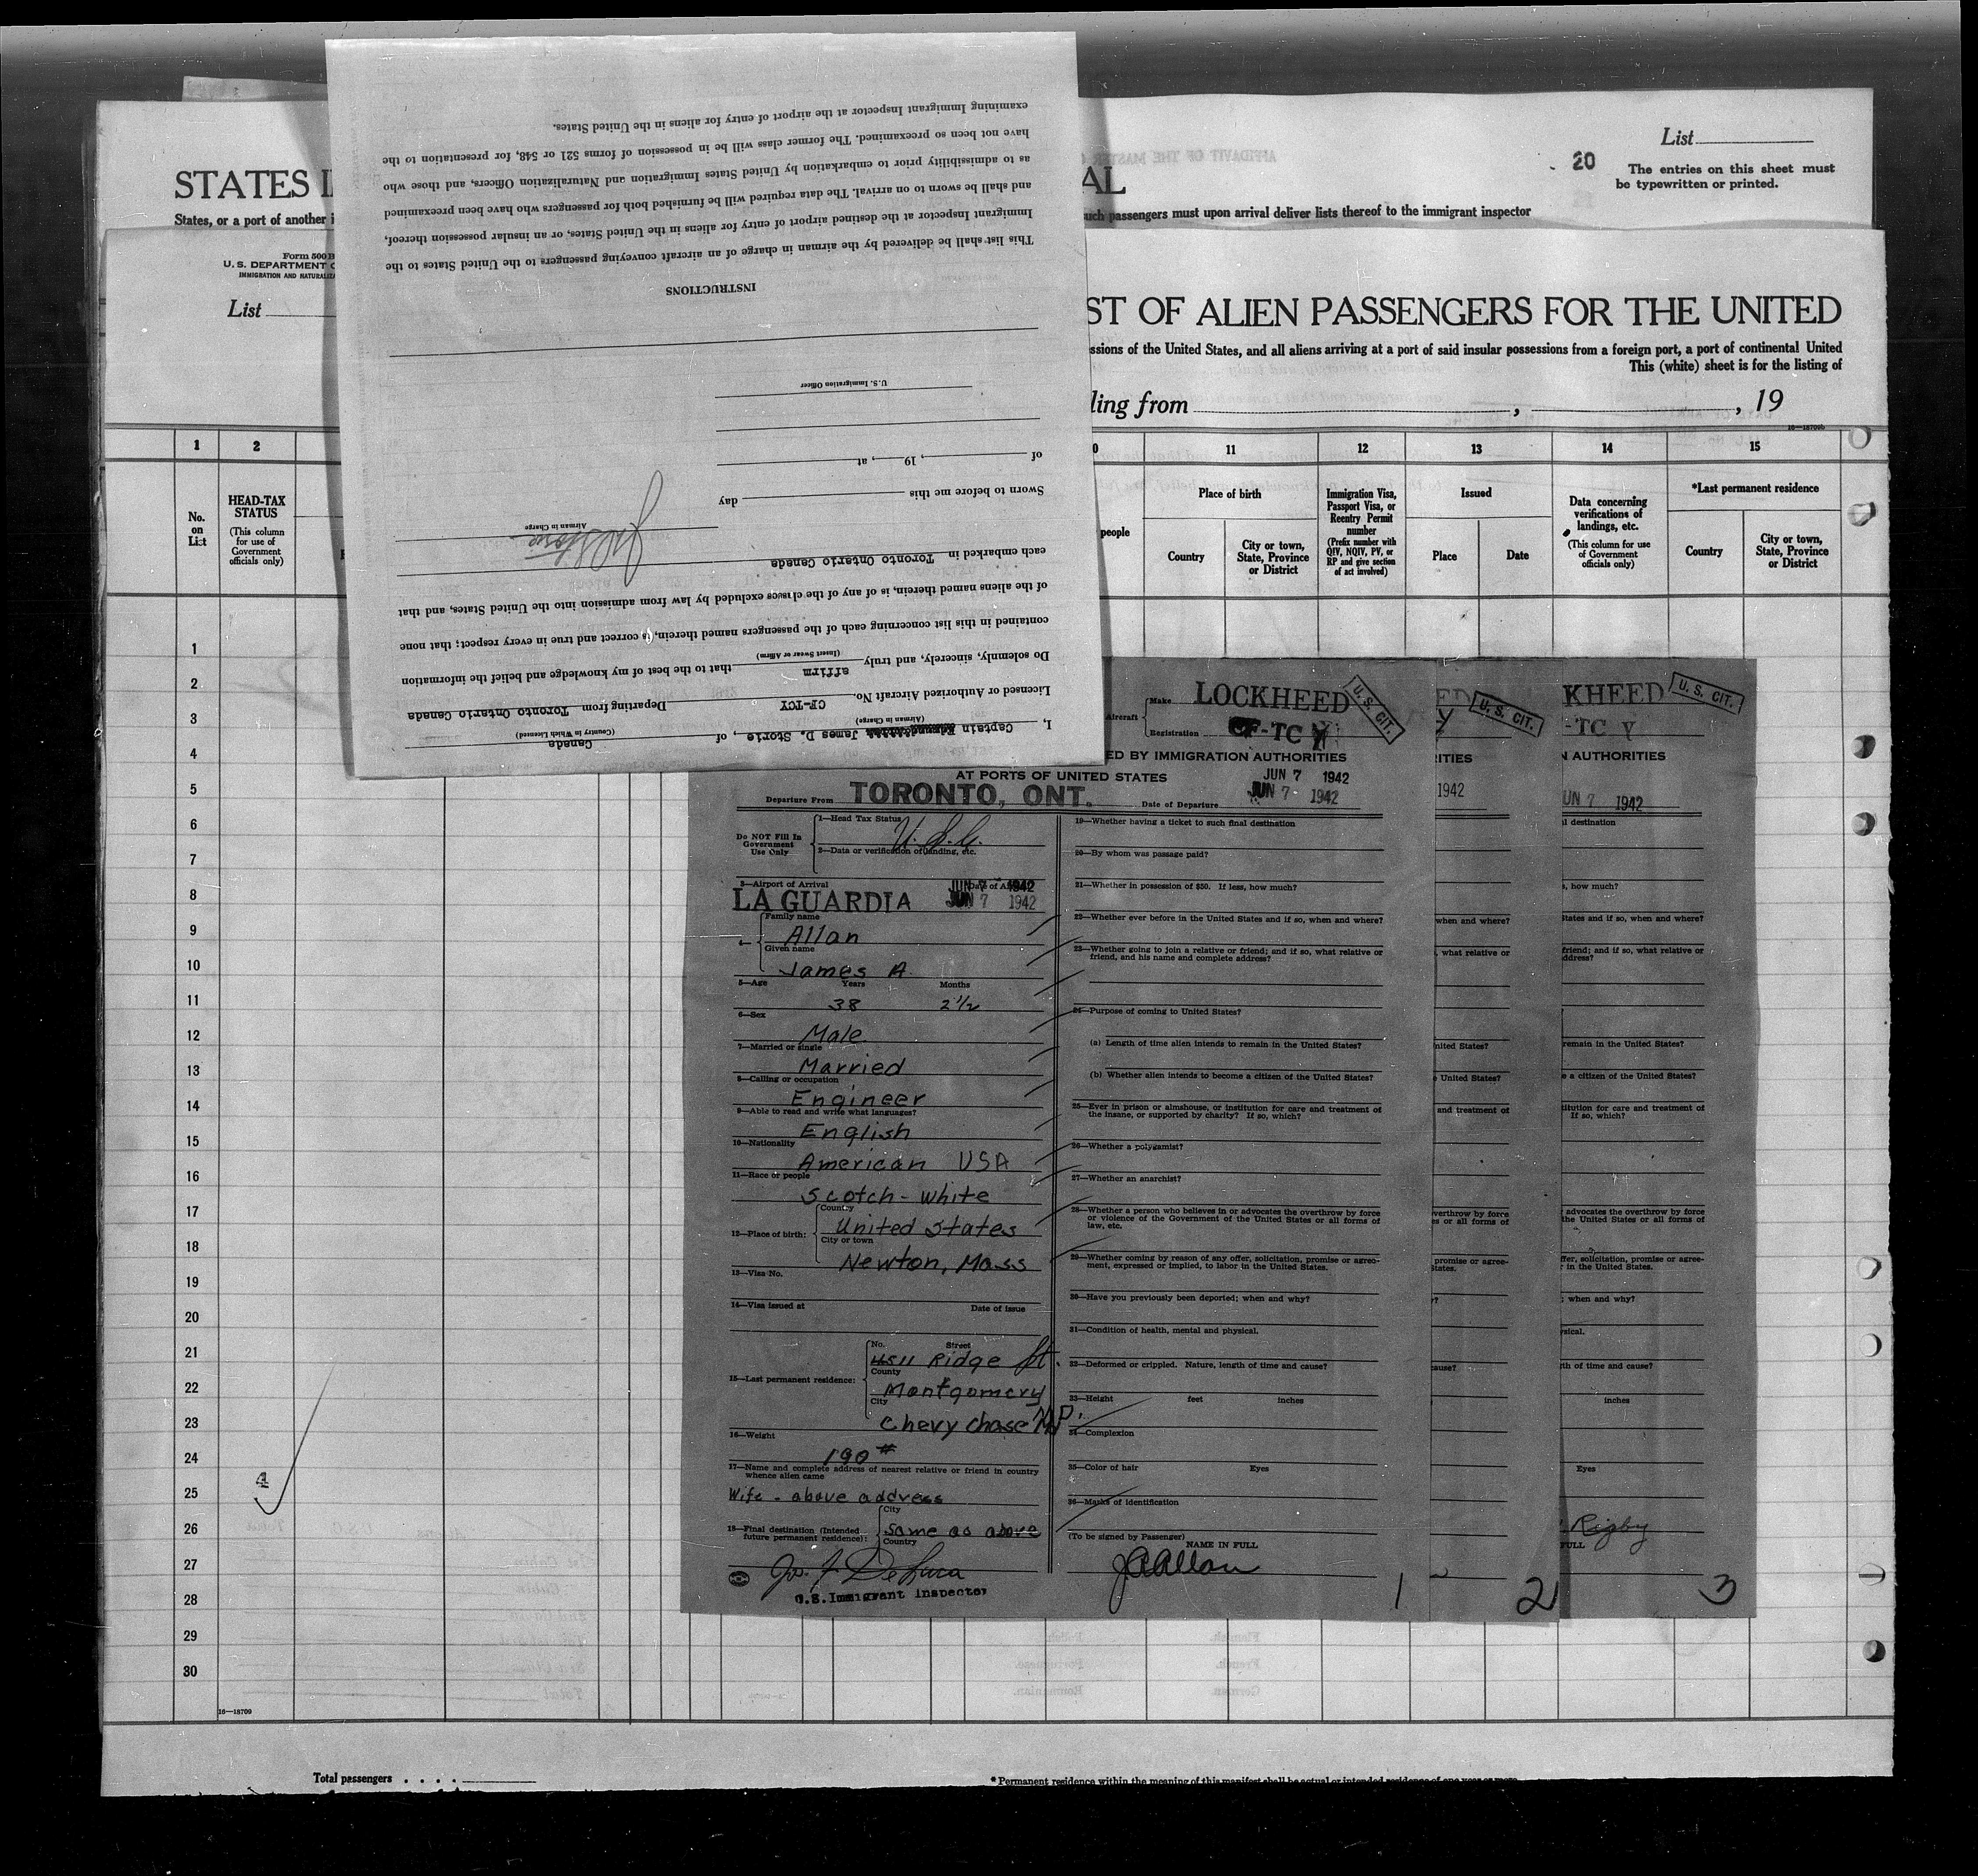 examining Immigrant Inspector at the airport of entry for aliens in the United States.
have not been so preexamined. The former class will be in possession of forms 521 or 548, for presentation to the
as to admissibility prior to embarkation by United States Immigration and Naturalization Officers, and those who
and shall be sworn to on arrival. The data required will be furnished both for passengers who have been preexamined
Immigrant Inspector at the destined airport of entry for aliens in the United States, or an insular possession thereof,
This list shall be delivered by the airman in charge of an aircraft conveying passengers to the United States to the
INSTRUCTIONS
U. S. Immigration Officer
of , 19 , at
Sworn to before me this day
Airman in Charge
each embarked in Toronto Ontario Canada
of the aliens named therein, is of any of the classes excluded by law from admission into the United States, and that
contained in this list concerning each of the passengers named therein, is correct and true in every respect; that none
(Insert Swear or Affirm)
Do solemnly, sincerely, and truly affirm that to the best of my knowledge and belief the information
Licensed or Authorized Aircraft No. CF-TCY Departing from Toronto Ontario Canada
(Airman in Charge) (Country in Which Licensed)
I, Captain James D. Storie, of Canada
STATES I
AL
List
20
The entries on this sheet must
be typewritten or printed.
AFFIDAVIT OF THE MASTER
States, or a port of another i
such passengers must upon arrival deliver lists thereof to the immigrant inspector
Form 500 B
U. S. DEPARTMENT O
IMMIGRATION AND NATURALIZA
List
ST OF ALIEN PASSENGERS FOR THE UNITED
ssions of the United States, and all aliens arriving at a port of said insular possessions from a foreign port, a port of continental United
This (white) sheet is for the listing of
ling from , , 19
16—18709b
1 2 0 11 12 13 14 15
No.
on
List
HEAD-TAX
STATUS
(This column
for use of
Government
officials only)
people
Place of birth
Country
City or town,
State, Province
or District
Immigration Visa,
Passport Visa, or
Reentry Permit
number
(Prefix number with
QIV, NQIV, PV, or
RP and give section
of act involved)
Issued
Place Date
Data concerning
verifications of
landings, etc.
(This column for use
of Government
officials only)
*Last permanent residence
Country
City or town,
State, Province
or District
1
2
3
4
5
6
7
8
9
10
11
12
13
14
15
16
17
18
19
20
21
22
23
24
25
26
27
28
29
30
4
16—18709
Total passengers . . . .
*Permanent residence within the meaning of this manifest shall be actual or intended residence of one year or more.
Aircraft
Make LOCKHEED
Registration CF-TCY
U. S. CIT.
ED BY IMMIGRATION AUTHORITIES
AT PORTS OF UNITED STATES
JUN 7 1942
Departure From TORONTO, ONT. Date of Departure JUN 7 1942
Do NOT Fill In
Government
Use Only
1—Head Tax Status
U. S. C.
2—Data or verification of landing, etc.
3—Airport of Arrival Date of Arrival
JUN 7 1942
LA GUARDIA JUN 7 1942
4—
Family name
Allan
Given name
James A.
5—Age Years Months
38 2 1/2
6—Sex
Male
7—Married or single
Married
8—Calling or occupation
Engineer
9—Able to read and write what languages?
English
10—Nationality
American USA
11—Race or people
Scotch - white
12—Place of birth:
Country
United States
City or town
Newton, Mass
13—Visa No.
14—Visa issued at Date of issue
15—Last permanent residence:
No. Street
4511 Ridge St.
County
Montgomery
City
Chevy Chase MD.
16—Weight
190 #
17—Name and complete address of nearest relative or friend in country
whence alien came
Wife - above address
18—Final destination (Intended
future permanent residence):
City
Same as above
Country
U.S. Immigrant Inspector
19—Whether having a ticket to such final destination
20—By whom was passage paid?
21—Whether in possession of $50. If less, how much?
22—Whether ever before in the United States and if so, when and where?
23—Whether going to join a relative or friend; and if so, what relative or
friend, and his name and complete address?
24—Purpose of coming to United States?
(a) Length of time alien intends to remain in the United States?
(b) Whether alien intends to become a citizen of the United States?
25—Ever in prison or almshouse, or institution for care and treatment of
the insane, or supported by charity? If so, which?
26—Whether a polygamist?
27—Whether an anarchist?
28—Whether a person who believes in or advocates the overthrow by force
or violence of the Government of the United States or all forms of
law, etc.
29—Whether coming by reason of any offer, solicitation, promise or agree-
ment, expressed or implied, to labor in the United States.
30—Have you previously been deported; when and why?
31—Condition of health, mental and physical.
32—Deformed or crippled. Nature, length of time and cause?
33—Height feet inches
34—Complexion
35—Color of hair Eyes
36—Marks of identification
(To be signed by Passenger)
NAME IN FULL
JA Allan
1
ED
U. S. CIT.
Y
RITIES
1942
when and where?
, what relative or
nited States?
e United States?
and treatment of
verthrow by force
es or all forms of
promise or agree-
States.
y?
cause?
2
KHEED
U. S. CIT.
-TC Y
N AUTHORITIES
UN 7 1942
l destination
s, how much?
States and if so, when and where?
friend; and if so, what relative or
ddress?
remain in the United States?
e a citizen of the United States?
titution for care and treatment of
If so, which?
advocates the overthrow by force
the United States or all forms of
ffer, solicitation, promise or agree-
r in the United States.
; when and why?
ysical.
th of time and cause?
inches
Eyes
Rigby
FULL
3